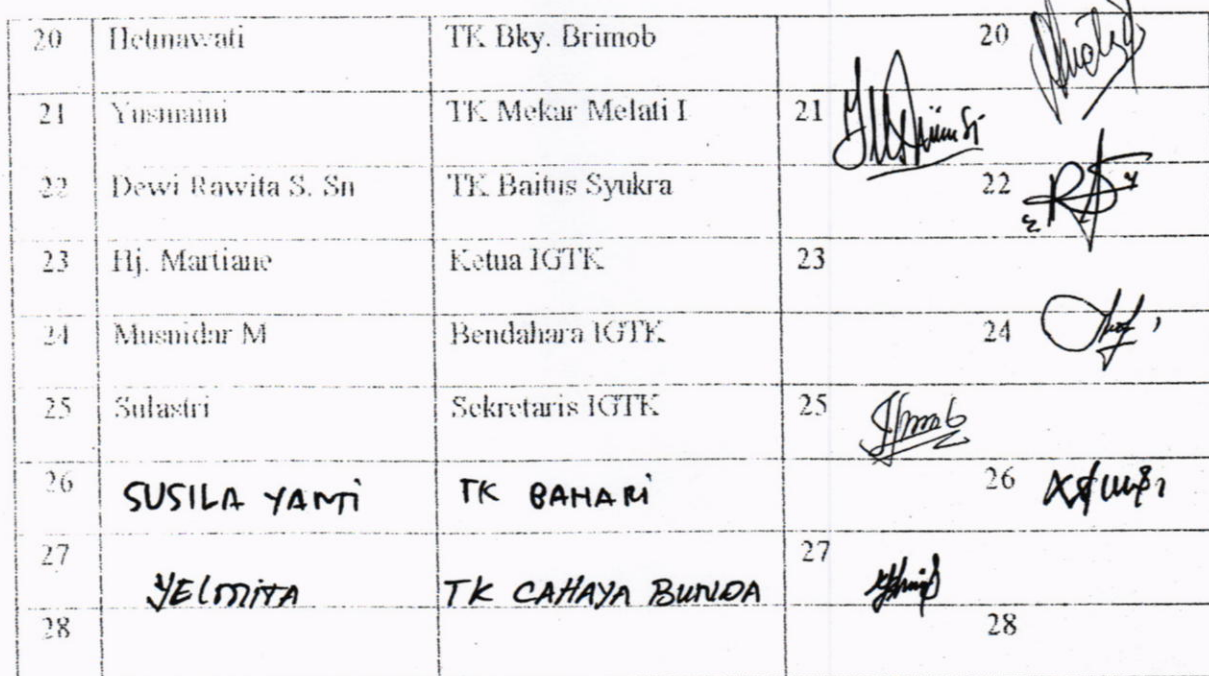 20 Helmawati TK Bky. Brimob 20
21 Yusmaini TK Mekar Melati I 21
22 Dewi Rawita S. Sn TK Baitus Syukra 22
23 Hj. Martiane Ketua IGTK 23
24 Musnidar M Bendahara IGTK 24
25 Sulastri Sekretaris IGTK 25
26 SUSILA YANTi TK BAHARi 26
27 YELMITA TK CAHAYA BUNDA 27
28 28